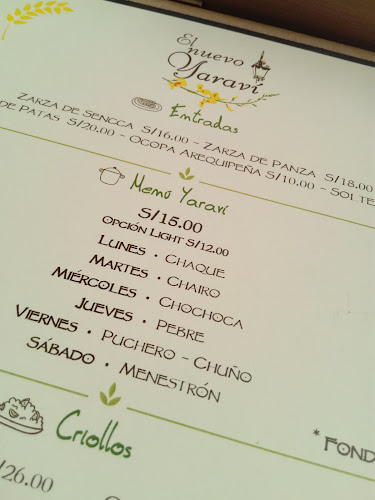 El
nuevo
Yaraví
Entradas
Zarza de Sencca S/16.00 - Zarza de Panza S/18.00
de Patas S/20.00 - Ocopa Arequipeña S/10.00 -
Menú Yaraví
S/15.00
Opción Light S/12.00
Lunes • Chaque
Martes • Chairo
Miércoles • Chochoca
Jueves • Pebre
Viernes • Puchero - Chuño
Sábado • Menestrón
* Fond
Criollos
/26.00